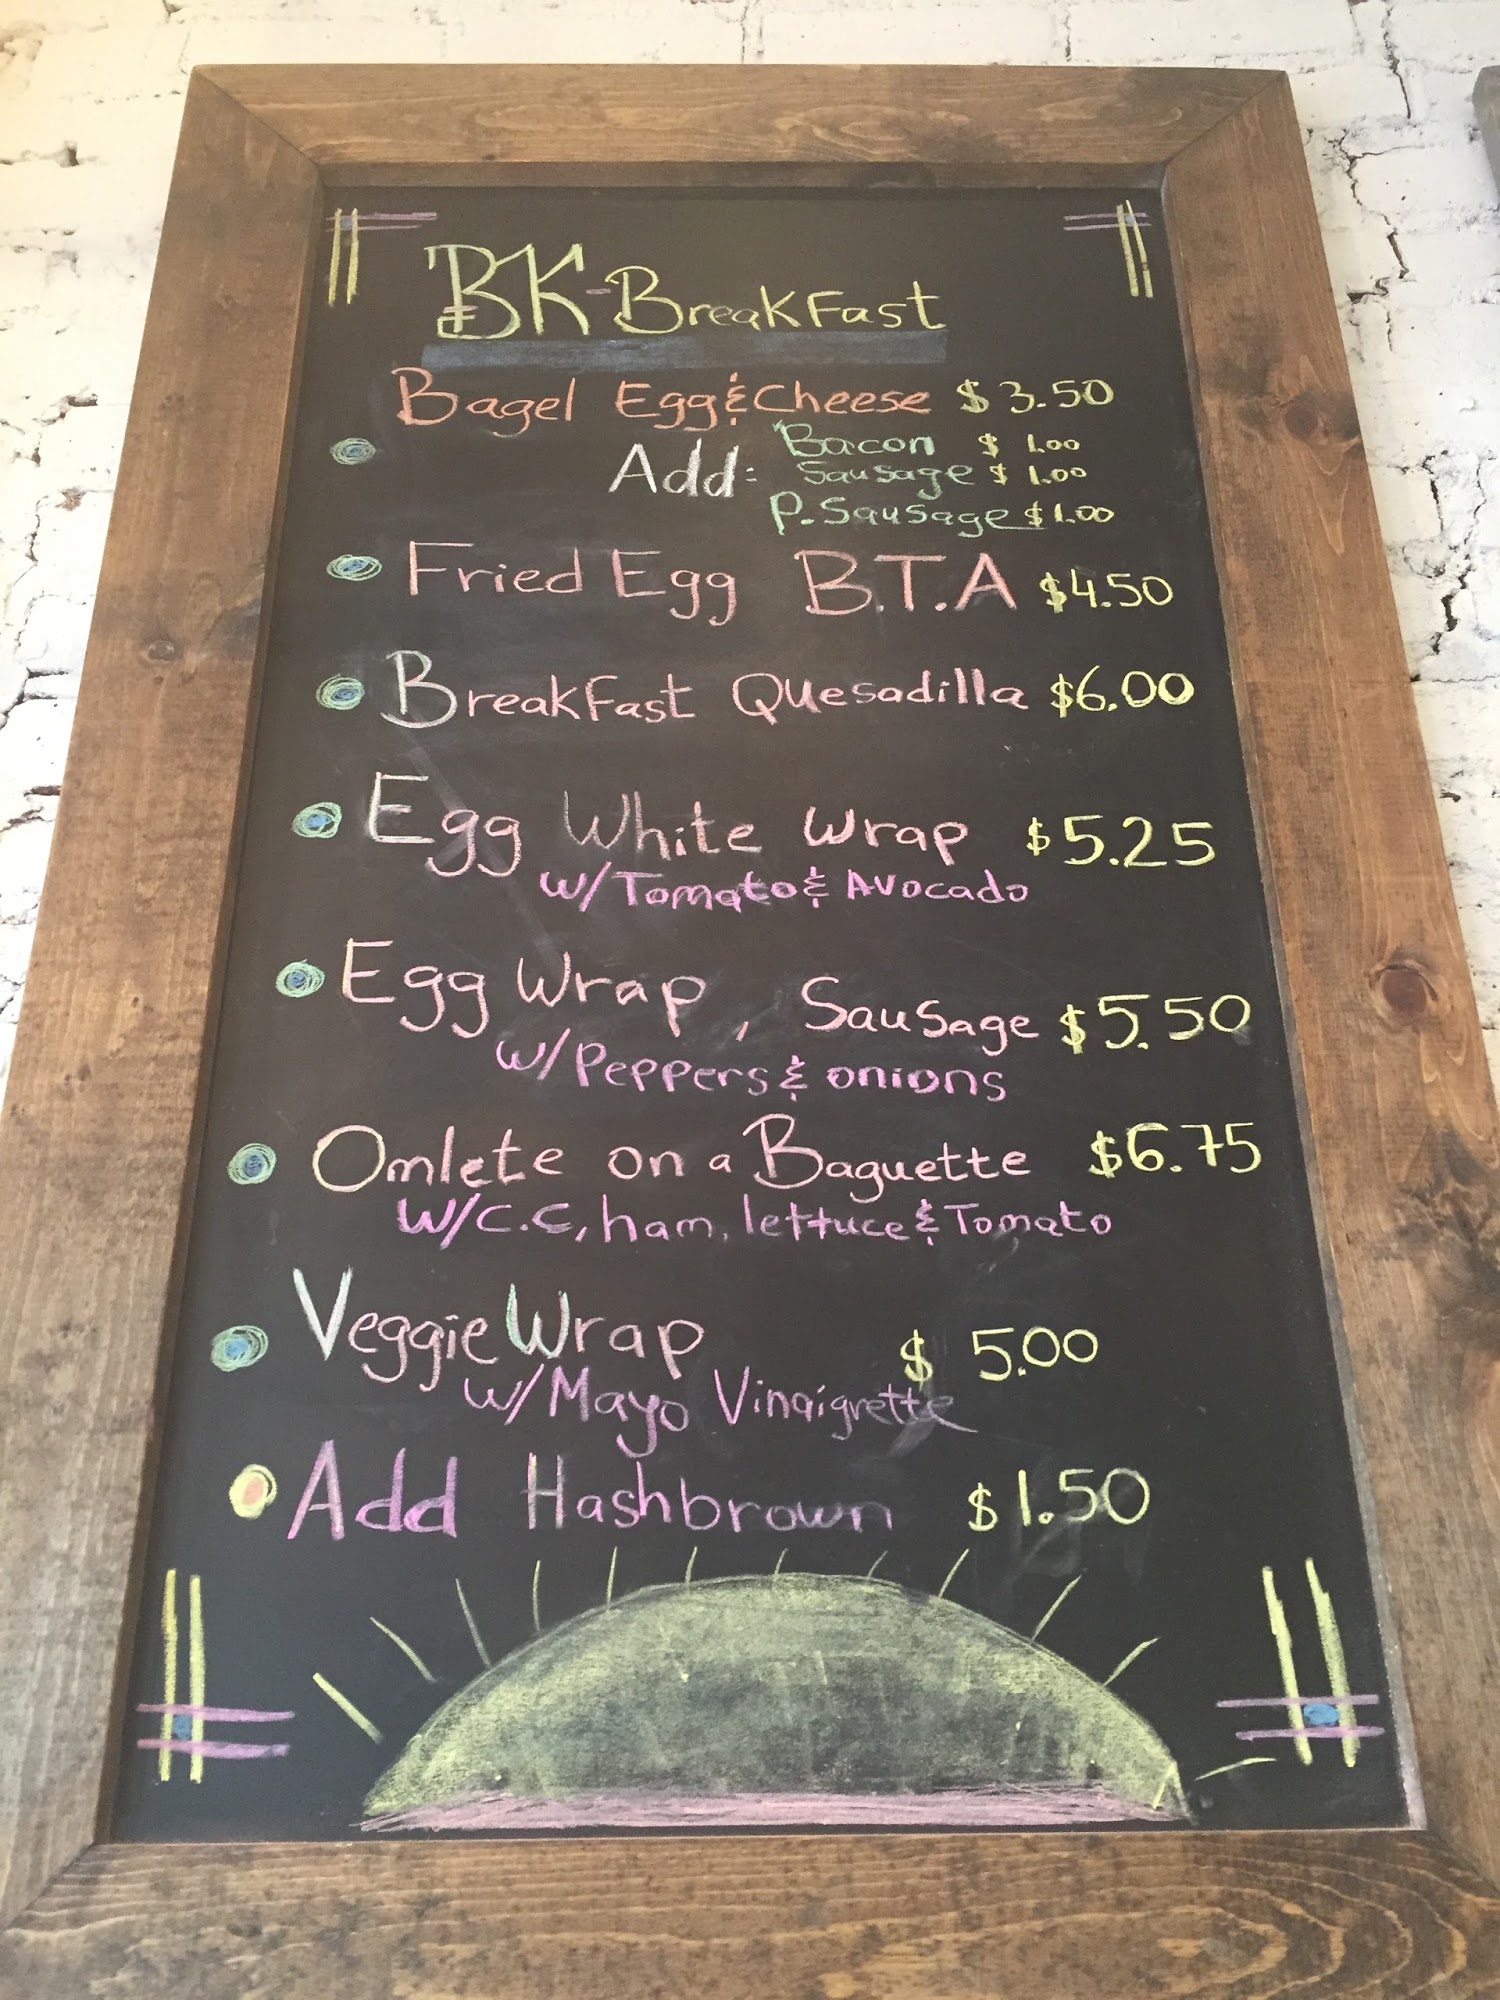 BK-Breakfast
Bagel Egg & Cheese $3.50
Add: Bacon $1.00
Sausage $1.00
P. Sausage $1.00
Fried Egg B.T.A $4.50
Breakfast Quesadilla $6.00
Egg White Wrap $5.25
w/Tomato & Avocado
Egg Wrap, Sausage $5.50
w/Peppers & onions
Omlete on a Baguette $6.75
W/C.C, ham, lettuce & Tomato
Veggie Wrap $5.00
w/Mayo Vinaigrette
Add Hashbrown $1.50